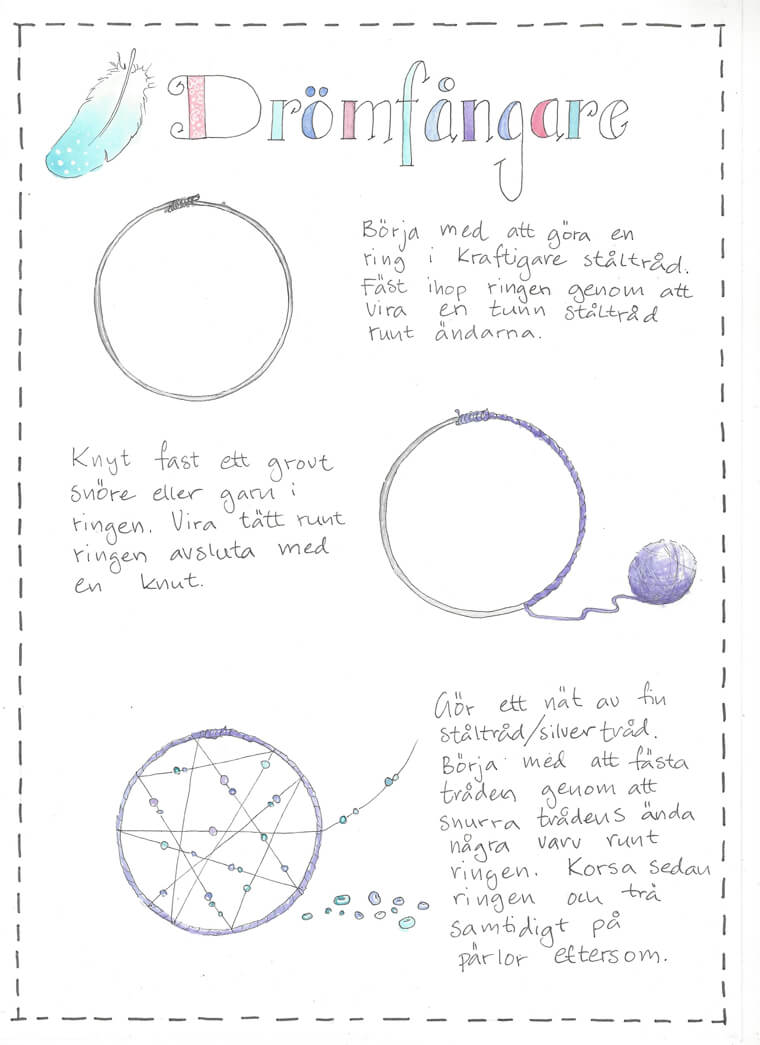 Drömfångare
Börja med att göra en
ring i kraftigare ståltråd.
Fäst ihop ringen genom att
vira en tunn ståltråd
runt ändarna.
Knyt fast ett grovt
snöre eller garn i
ringen. Vira tätt runt
ringen avsluta med
en knut.
Gör ett nät av fin
ståltråd/silvertråd.
Börja med att fästa
tråden genom att
snurra trådens ända
några varv runt
ringen. Korsa sedan
ringen och trä
samtidigt på
pärlor eftersom.